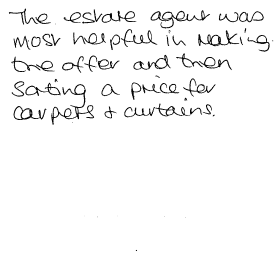 The estate agent was
most helpful in making
the offer and then
sorting a price for
carpets + curtains.